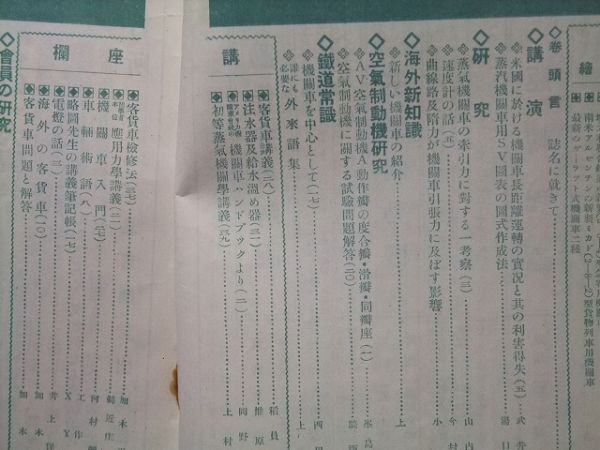 繪
南米アルゼンチンの新製
最新
◇卷頭言 誌名に就きて
◇講演
※米國に於ける機關車長距離運轉の實況と其の利害得失(五) 武井
※蒸汽機關車用SV圖表の圖式作成法 湯口
◇硏究
※蒸氣機關車の牽引力に對する一考察(三) 山內
※速度計の話(五)
※曲線路及隋力が機關車引張力に及ぼす影響 小
◇海外新知識
※新しい機關車の紹介 上
◇空氣制動機硏究
※AV空氣制動機A動作瓣の度合瓣・滑瓣・同瓣座(一)
※空氣制動機に關する試驗問題解答(三〇)
◇鐵道常識
※機關車を中心として(一七) 西
※誰にも必要な 外來語集 上
講
◈客貨車講義(三八) 稻員
◈注水器及給水溫め器(三一) 椎原
機關車ハンドブックより(二) 岡野
◈初等蒸氣機關學講義(三九) 上村
座
◈客貨車檢修法(三七) 加木
應用力學講義(三一) 鶴近庄
◈機關車入門(三七) 河村
◈車輛術語(八) 工作
◈略圖先生の講義筆記帳(一七) XY
◈電燈の話(三三) 井上保
◈海外の客貨車(一〇) 加木
◈客貨車問題と解答 加木
欄
◇會員の硏究